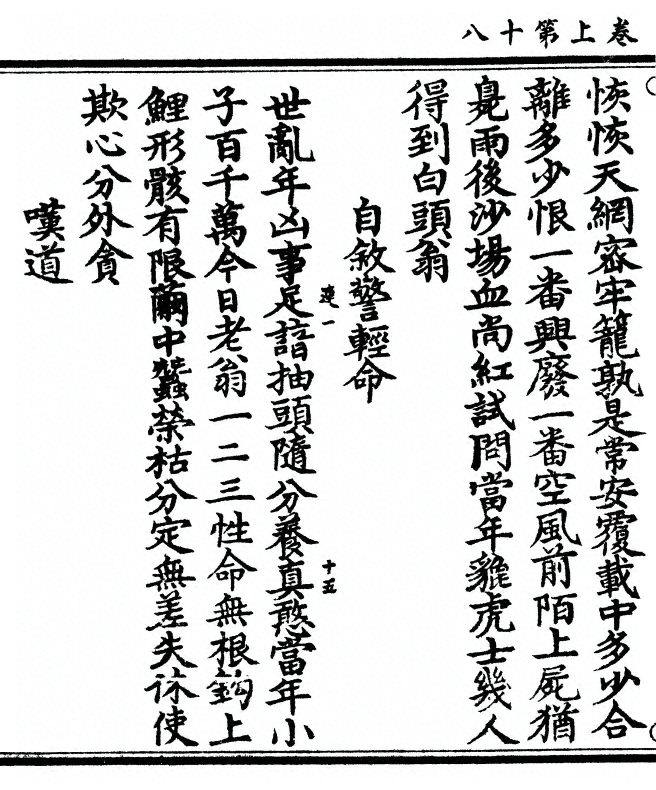 卷上第十八
恢恢天網密牢籠孰是常安覆載中多少合
離多少恨一番興廢一番空風前陌上屍猶
臭雨後沙場血尚紅試問當年貔虎士幾人
得到白頭翁
自敘警輕命
世亂年凶事足諳抽頭隨分養真憨當年小
連一
十五
子百千萬今日老翁一二三性命無根鈎上
鯉形骸有限繭中蠶榮枯分定無差失休使
欺心分外貪
嘆道